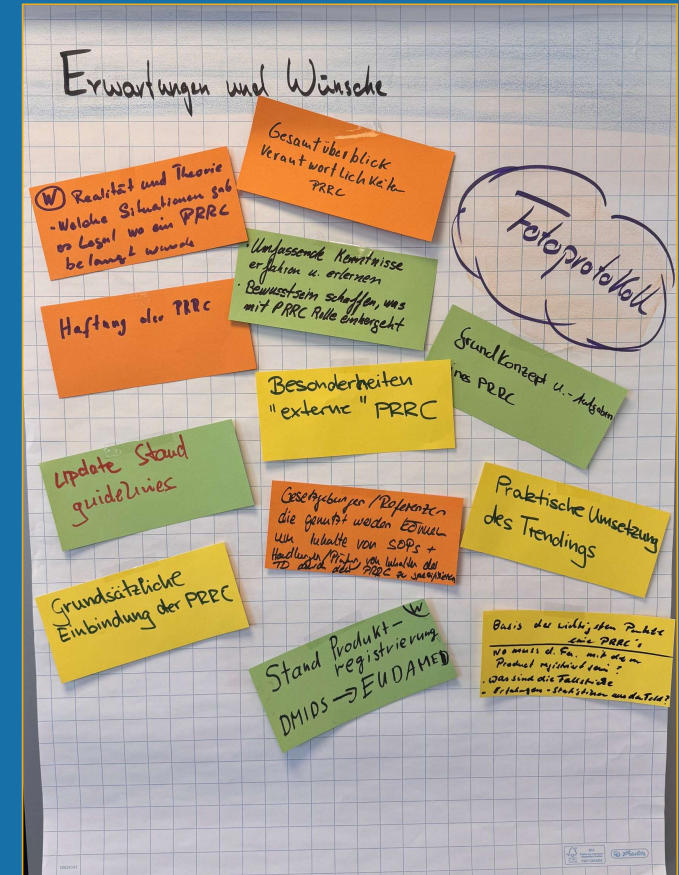 Erwartungen und Wünsche
Gesamtüberblick
Verantwortlichkeiten
PRRC
W Realität und Theorie
- Welche Situationen gab
es legal wo ein PRRC
belangt wurde
Fotoprotokoll
- Umfassende Kenntnisse
erfahren u. erlernen
- Bewusstsein schaffen, was
mit PRRC Rolle einhergeht
Haftung der PRRC
Grundkonzept u. -Aufgaben
eines PRRC
Besonderheiten
"externe" PRRC
Update Stand
guidelines
Gesetzgebungen/Referenzen
die genutzt werden können
um Inhalte von SOPs +
von Inhalten der
TD durch den PRRC zu spezifizieren
Praktische Umsetzung
des Trendings
Grundsätzliche
Einbindung der PRRC
W
Stand Produkt-
registrierung
DMIDS → EUDAMED
Basis der wichtigsten Punkte
eine PRRC's
wo muss d. Fa. mit dem
Product registriert sein?
- was sind die Fallstricke
- Erfahrungen - Statistiken aus dem Feld?